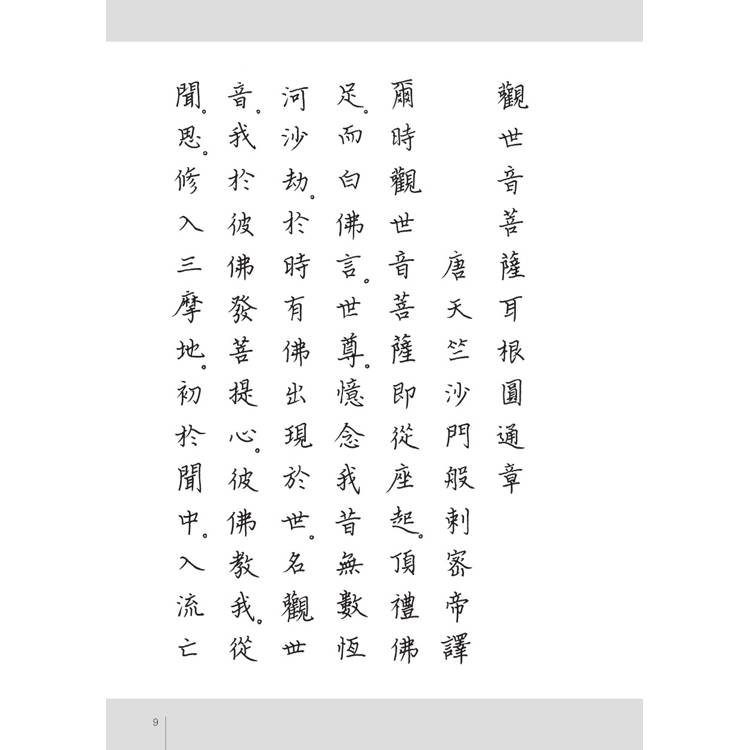 觀世音菩薩耳根圓通章
唐天竺沙門般剌密帝譯
爾時觀世音菩薩即從座起。頂禮佛
足。而白佛言。世尊。憶念我昔無數恆
河沙劫。於時有佛出現於世。名觀世
音。我於彼佛發菩提心。彼佛教我。從
聞。思。修入三摩地。初於聞中。入流亡
9